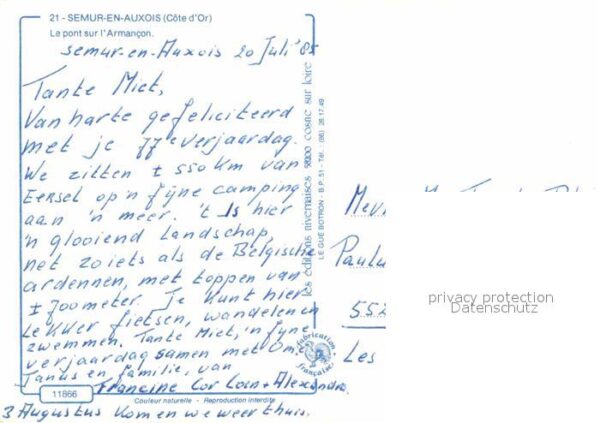 21 - SEMUR-EN-AUXOIS (Côte d'Or)
Le pont sur l'Armançon.
Semur-en-Auxois 20 Juli '85
Tante Miet,
Van harte gefeliciteerd
met je 77e verjaardag.
We zitten ± 550 km van
Eersel op 'n fijne camping
aan 'n meer. 't Is hier
'n glooiend landschap,
net zoiets als de Belgische
ardennen, met toppen van
± 700 meter. Je kunt hier
lekker fietsen, wandelen en
zwemmen. Tante Miet, 'n fijne
verjaardag samen met Om
Janus en familie, van
Francine Cor Loin + Alexandra.
3 Augustus komen we weer thuis.
11866
Couleur naturelle - Reproduction interdite
les éditions nivernaises 58200 cosne sur loire
LE GUÉ BOTRON - B.P. 51 - Tél. (86) 28.17.49
fabrication française
Mev
Paulu
552
Les
privacy protection
Datenschutz